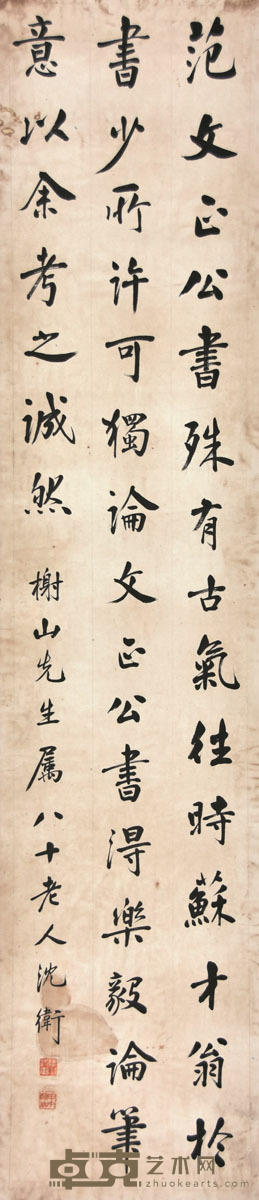 范文正公書殊有古氣往時蘇才翁於
書少所許可獨論文正公書得樂毅論筆
意以余考之誠然
榭山先生属八十老人沈衛
卓克艺术网
zhuokearts.com